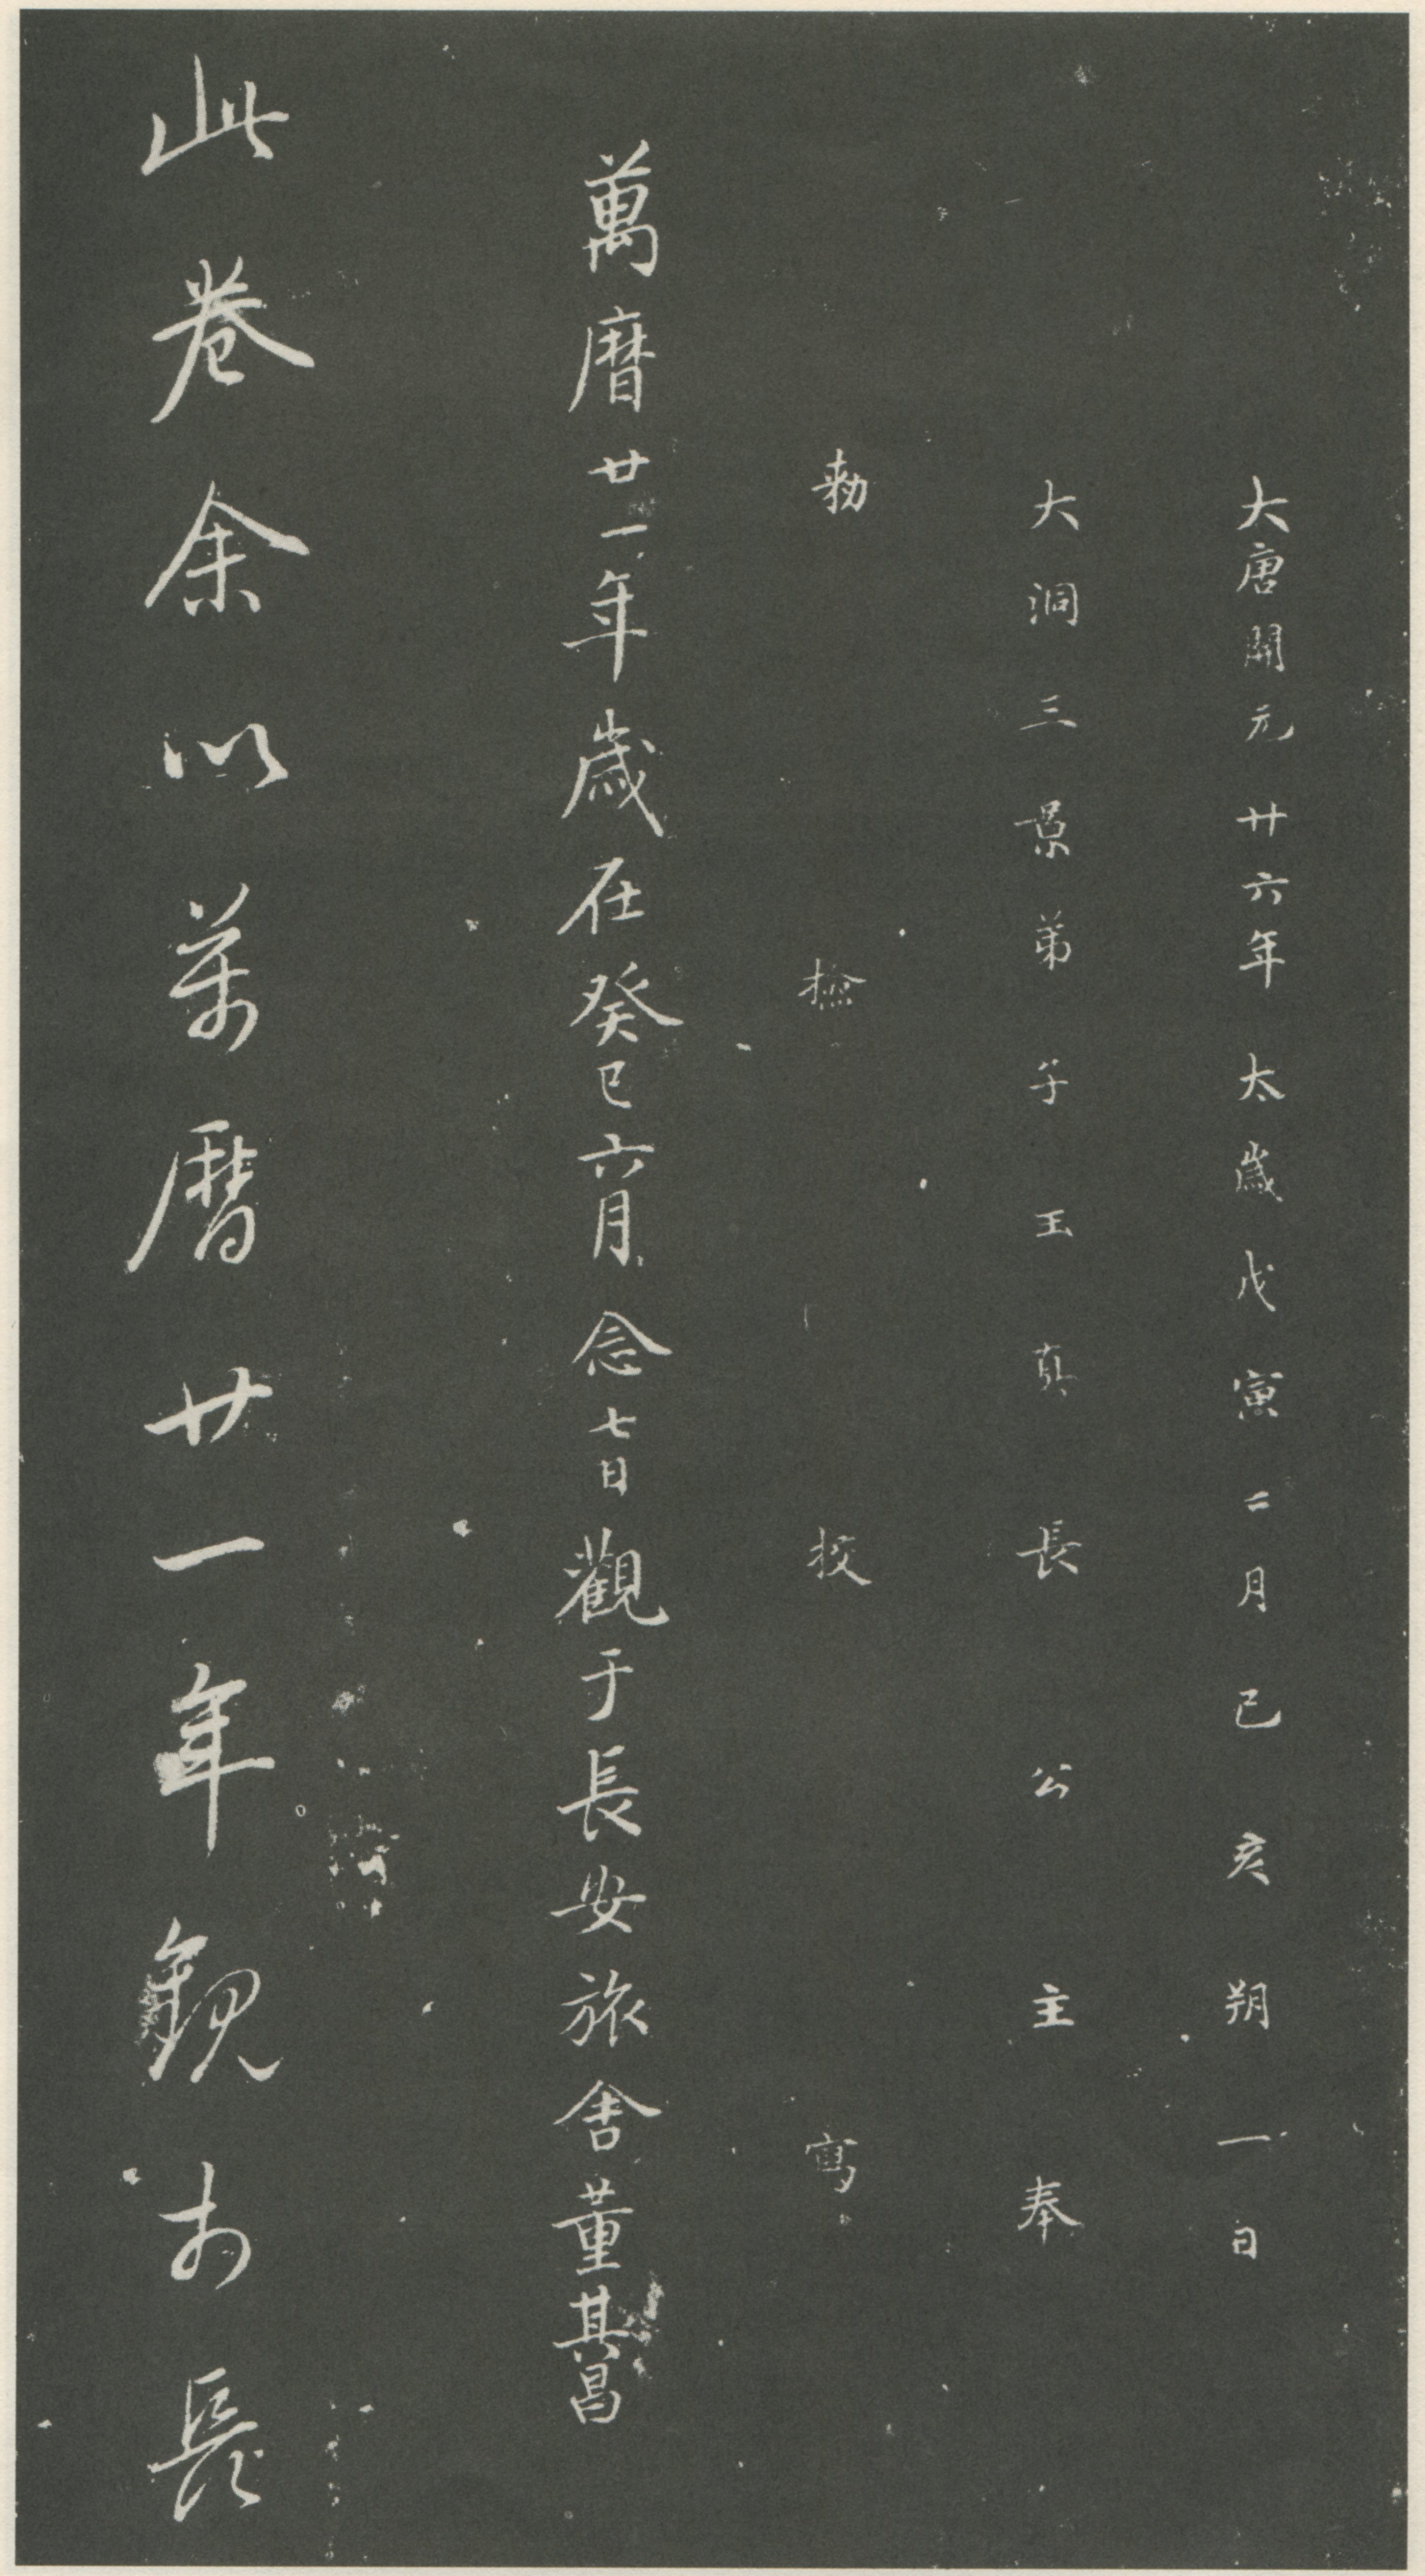 大唐開元廿六年太歲戊寅二月己亥朔一日
大洞三景弟子玉真長公主奉
勑撿挍寫
萬曆廿一年歲在癸巳六月念七日觀于長安旅舍董其昌
此卷余以萬曆廿一年觀於長